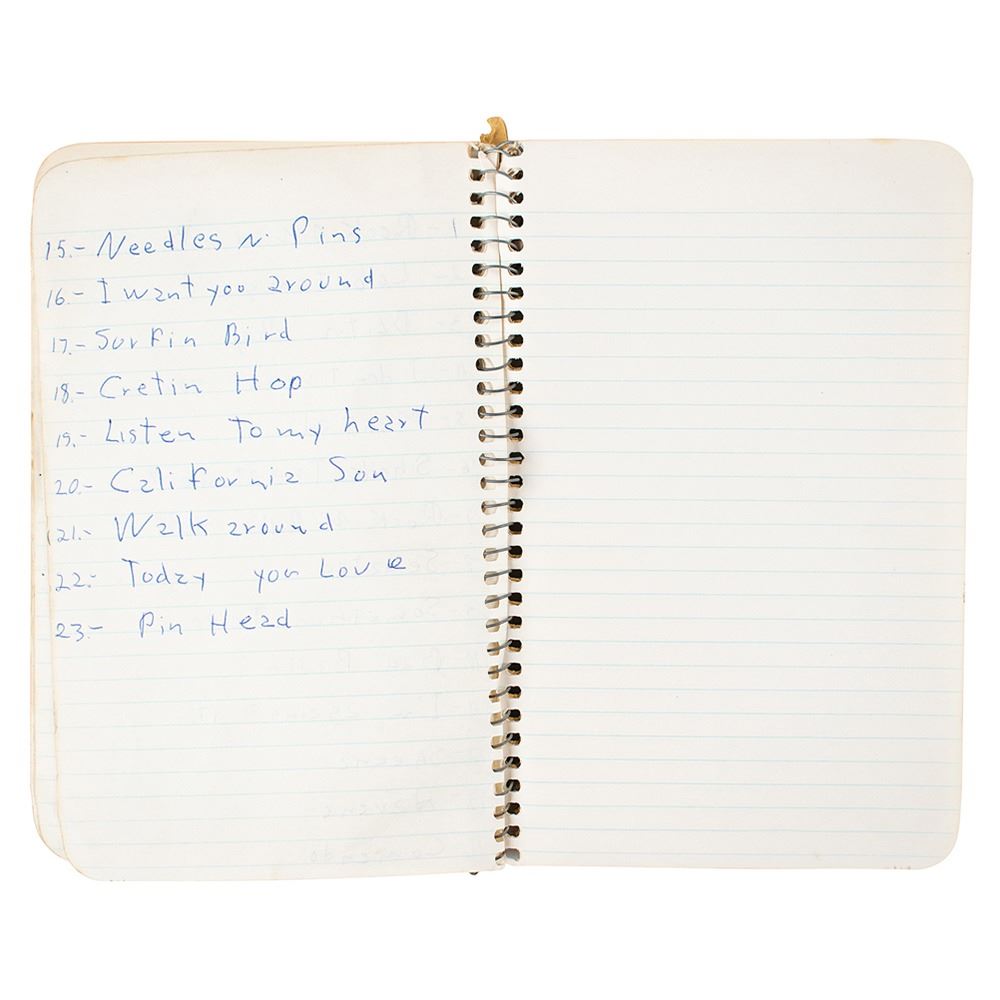 15.- Needles N. Pins
16.- I want you around
17.- Surfin Bird
18.- Cretin Hop
19.- Listen To my heart
20.- California Son
21.- Walk around
22.- Today you Love
23.- Pin Head